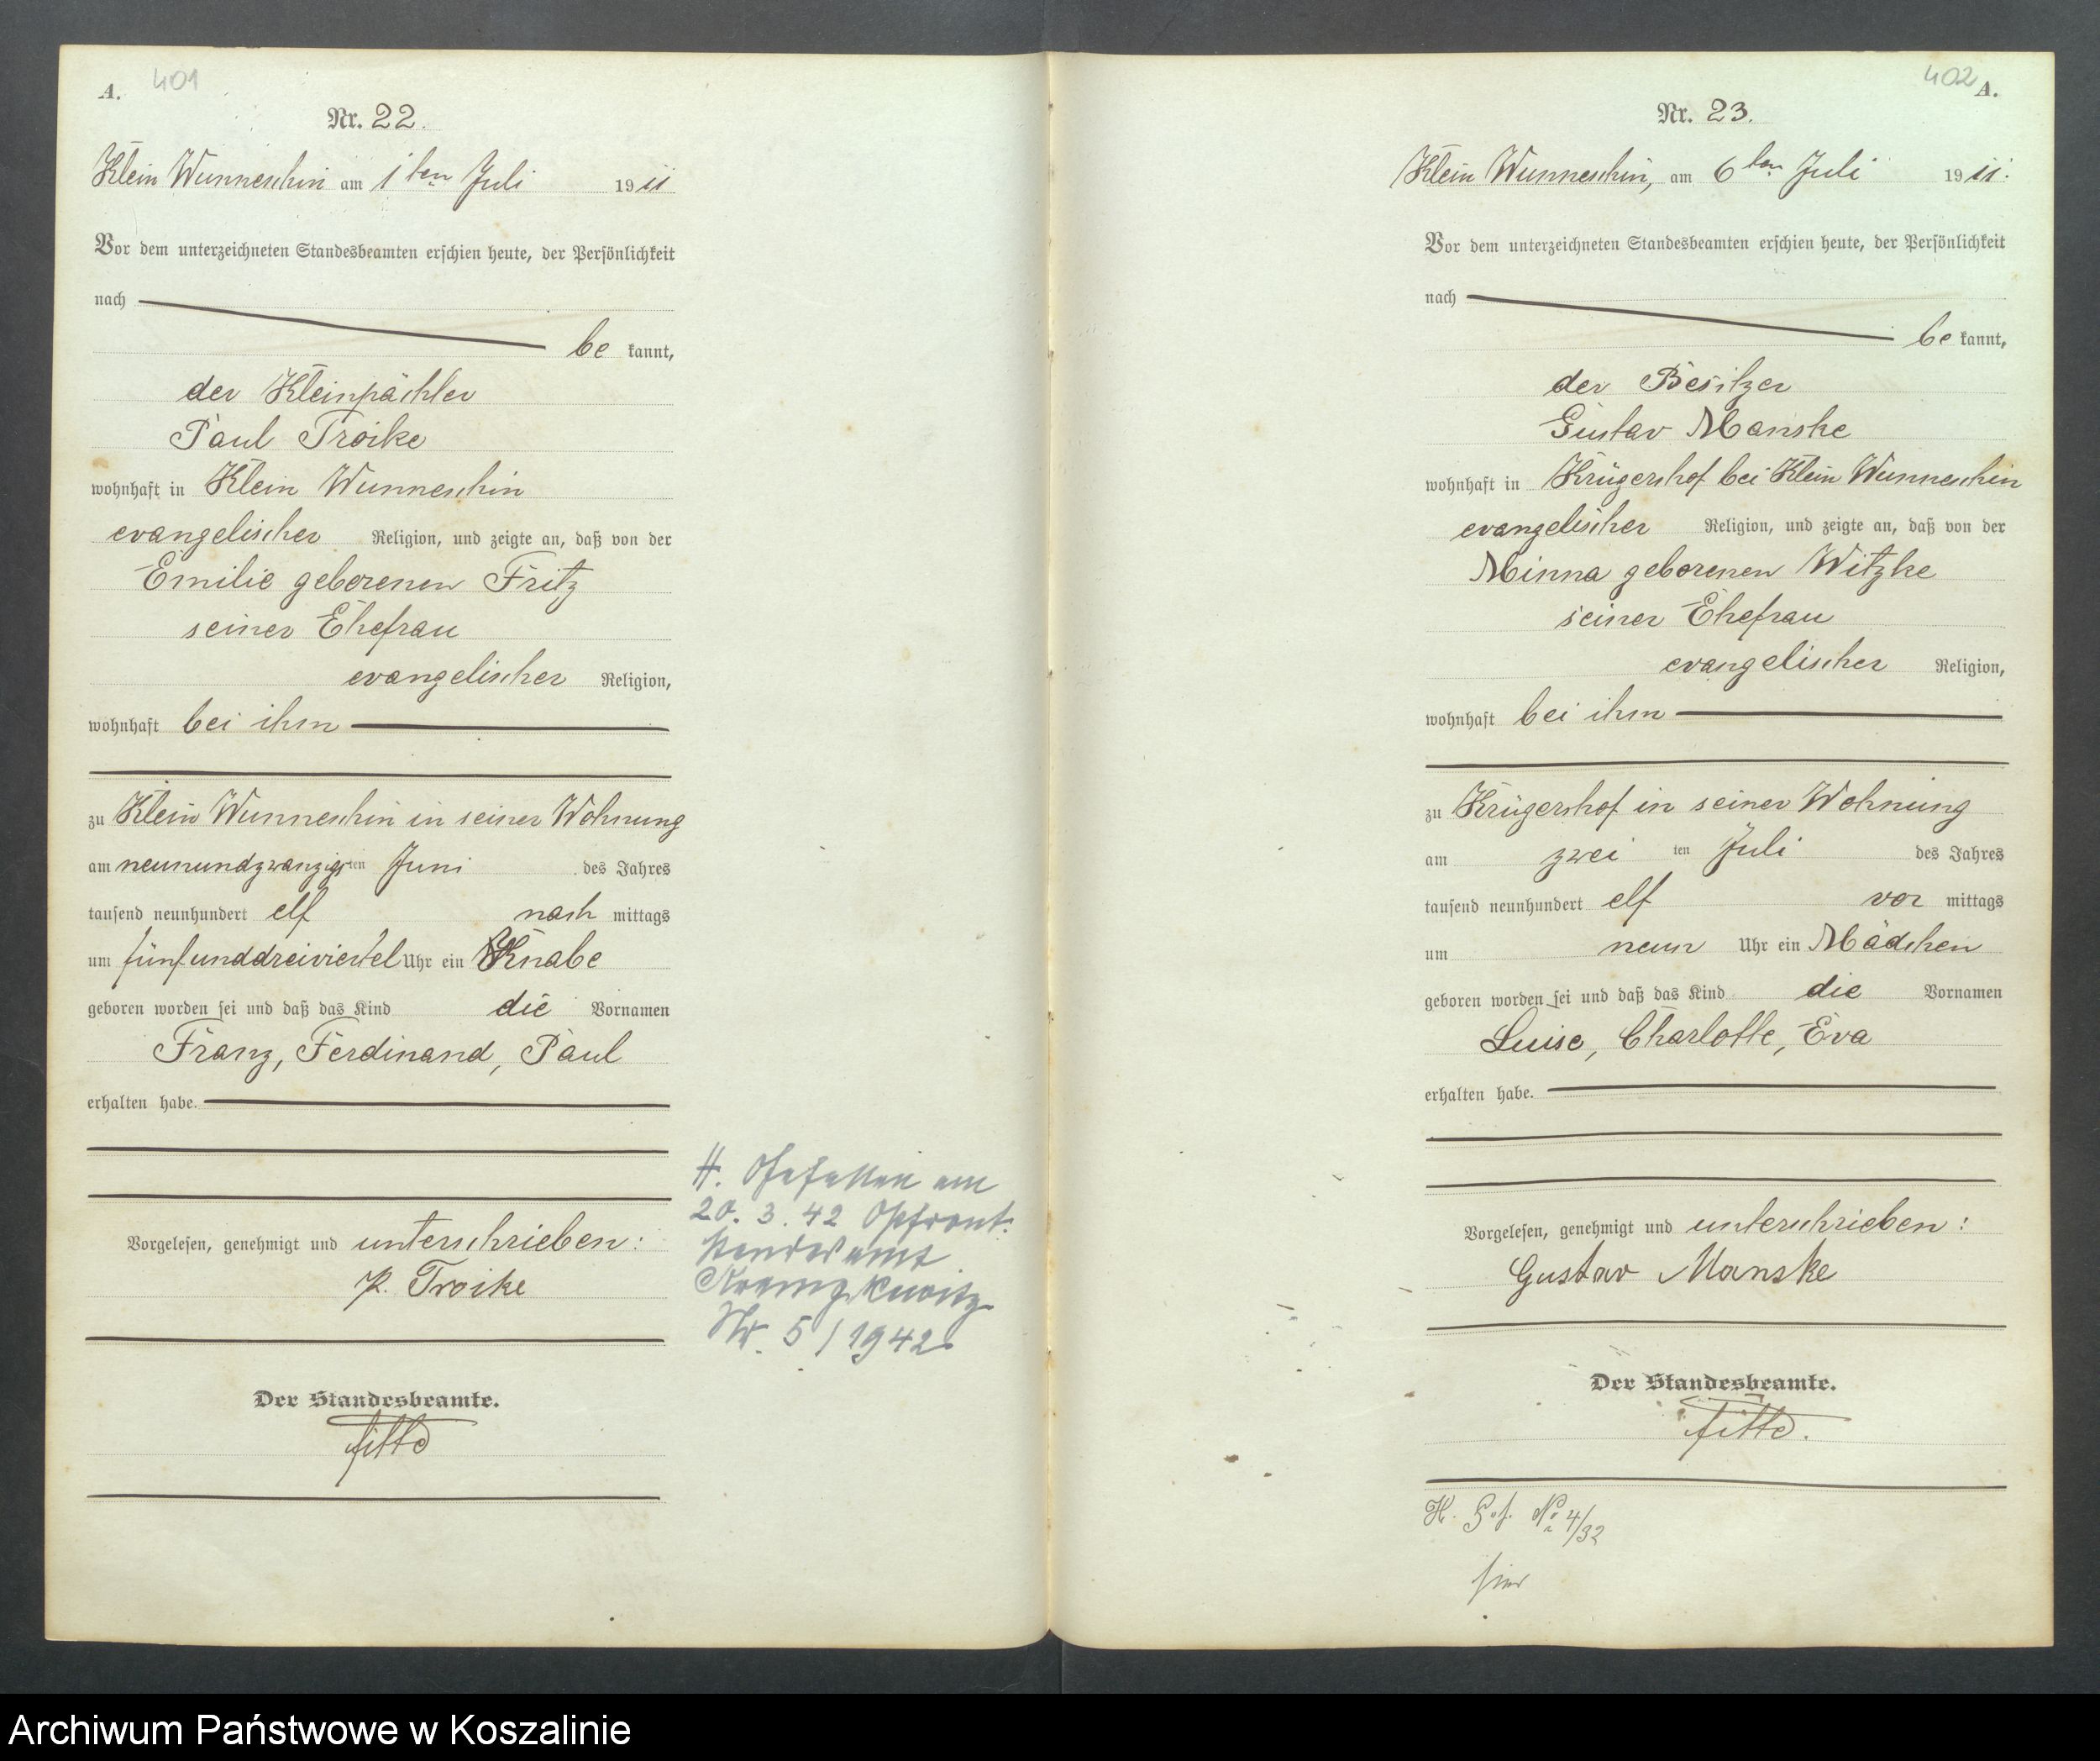 A. 401
Nr. 22.
Klein Wunneschin am 1ten Juli 1911
Vor dem unterzeichneten Standesbeamten erschien heute, der Persönlichkeit
nach
be kannt,
der Kleinpächter
Paul Troike
wohnhaft in Klein Wunneschin
evangelischer Religion, und zeigte an, daß von der
Emilie geborenen Fritz
seiner Ehefrau
evangelischer Religion,
wohnhaft bei ihm
zu Klein Wunneschin in seiner Wohnung
am neunundzwanzigsten Juni des Jahres
tausend neunhundert elf nach mittags
um fünfunddreiviertel Uhr ein Knabe
geboren worden sei und daß das Kind die Vornamen
Franz, Ferdinand, Paul
erhalten habe.
Vorgelesen, genehmigt und unterschrieben:
P. Troike
Der Standesbeamte.
H. Gefallen am
20. 3. 42 Ostfront.
Standesamt
Nr. 5/1942
402 A.
Nr. 23.
Klein Wunneschin, am 6ten Juli 1911.
Vor dem unterzeichneten Standesbeamten erschien heute, der Persönlichkeit
nach
be kannt,
der Besitzer
Gustav Manske
wohnhaft in Krügershof bei Klein Wunneschin
evangelischer Religion, und zeigte an, daß von der
Minna geborenen Witzke
seiner Ehefrau
evangelischer Religion,
wohnhaft bei ihm
zu Krügershof in seiner Wohnung
am zwei ten Juli des Jahres
tausend neunhundert elf vor mittags
um neun Uhr ein Mädchen
geboren worden sei und daß das Kind die Vornamen
Luise, Charlotte, Eva
erhalten habe.
Vorgelesen, genehmigt und unterschrieben:
Gustav Manske
Der Standesbeamte.
H. No 4/32
Archiwum Państwowe w Koszalinie